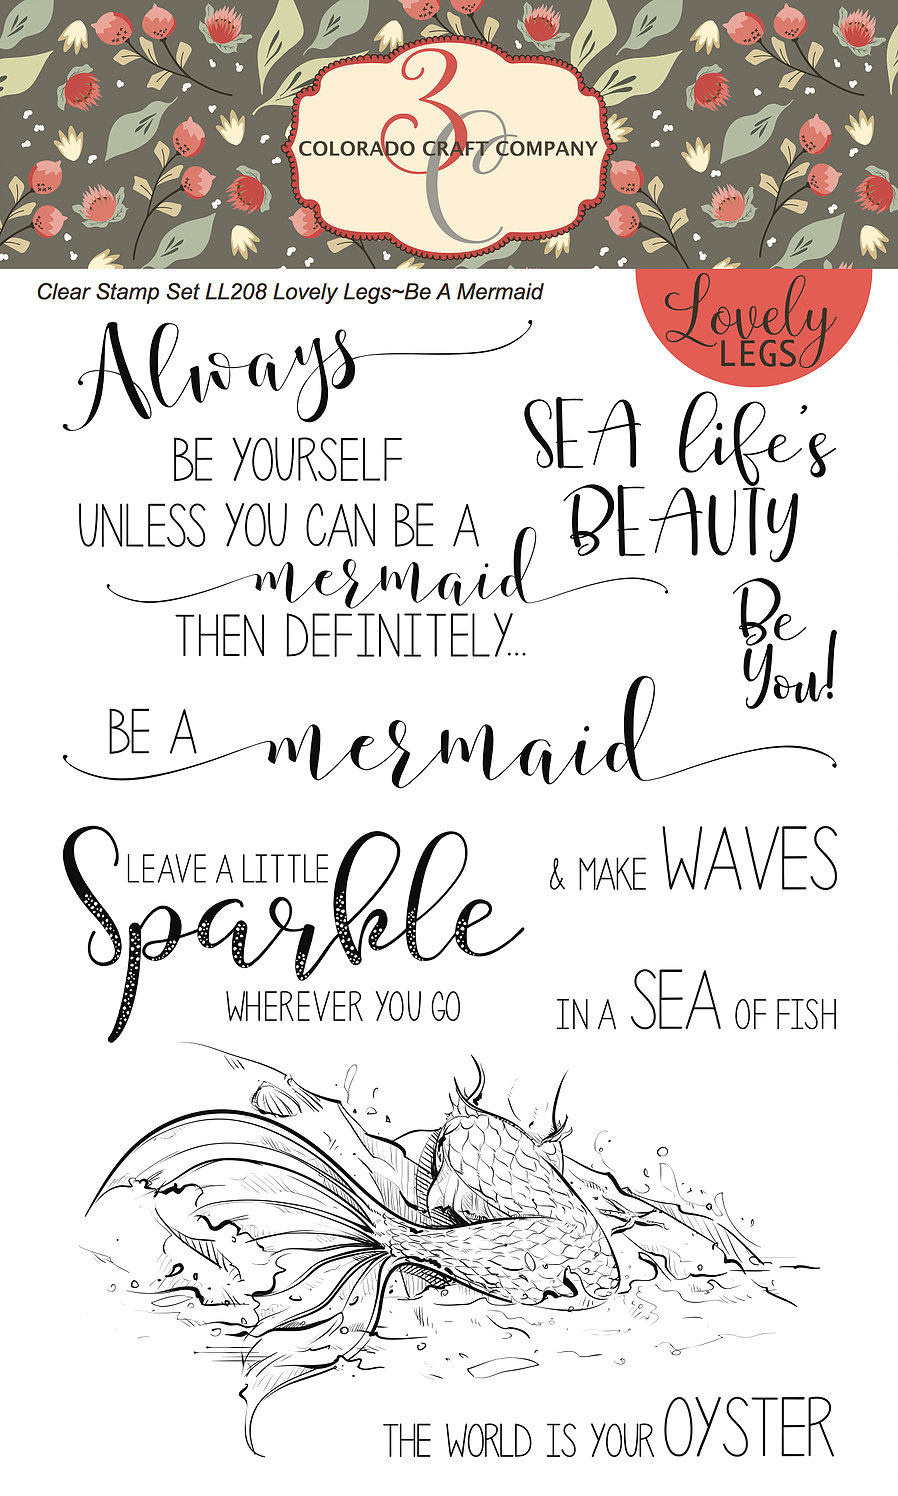 3C
COLORADO CRAFT COMPANY
Clear Stamp Set LL208 Lovely Legs~Be A Mermaid
Lovely
LEGS
Always
BE YOURSELF
UNLESS YOU CAN BE A
mermaid
THEN DEFINITELY...
SEA life's
BEAUTY
Be
You!
BE A mermaid
LEAVE A LITTLE
Sparkle
WHEREVER YOU GO
& MAKE WAVES
IN A SEA OF FISH
THE WORLD IS YOUR OYSTER